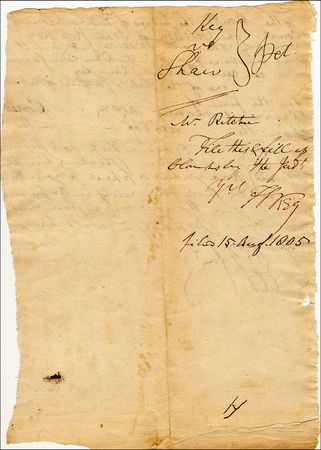 Key
vs } Pet
Shaw
Mr. Ritchie
File this & fill up
blanks by the Jadt
Yrs
F S Key
filed 15 Aug. 1805
14